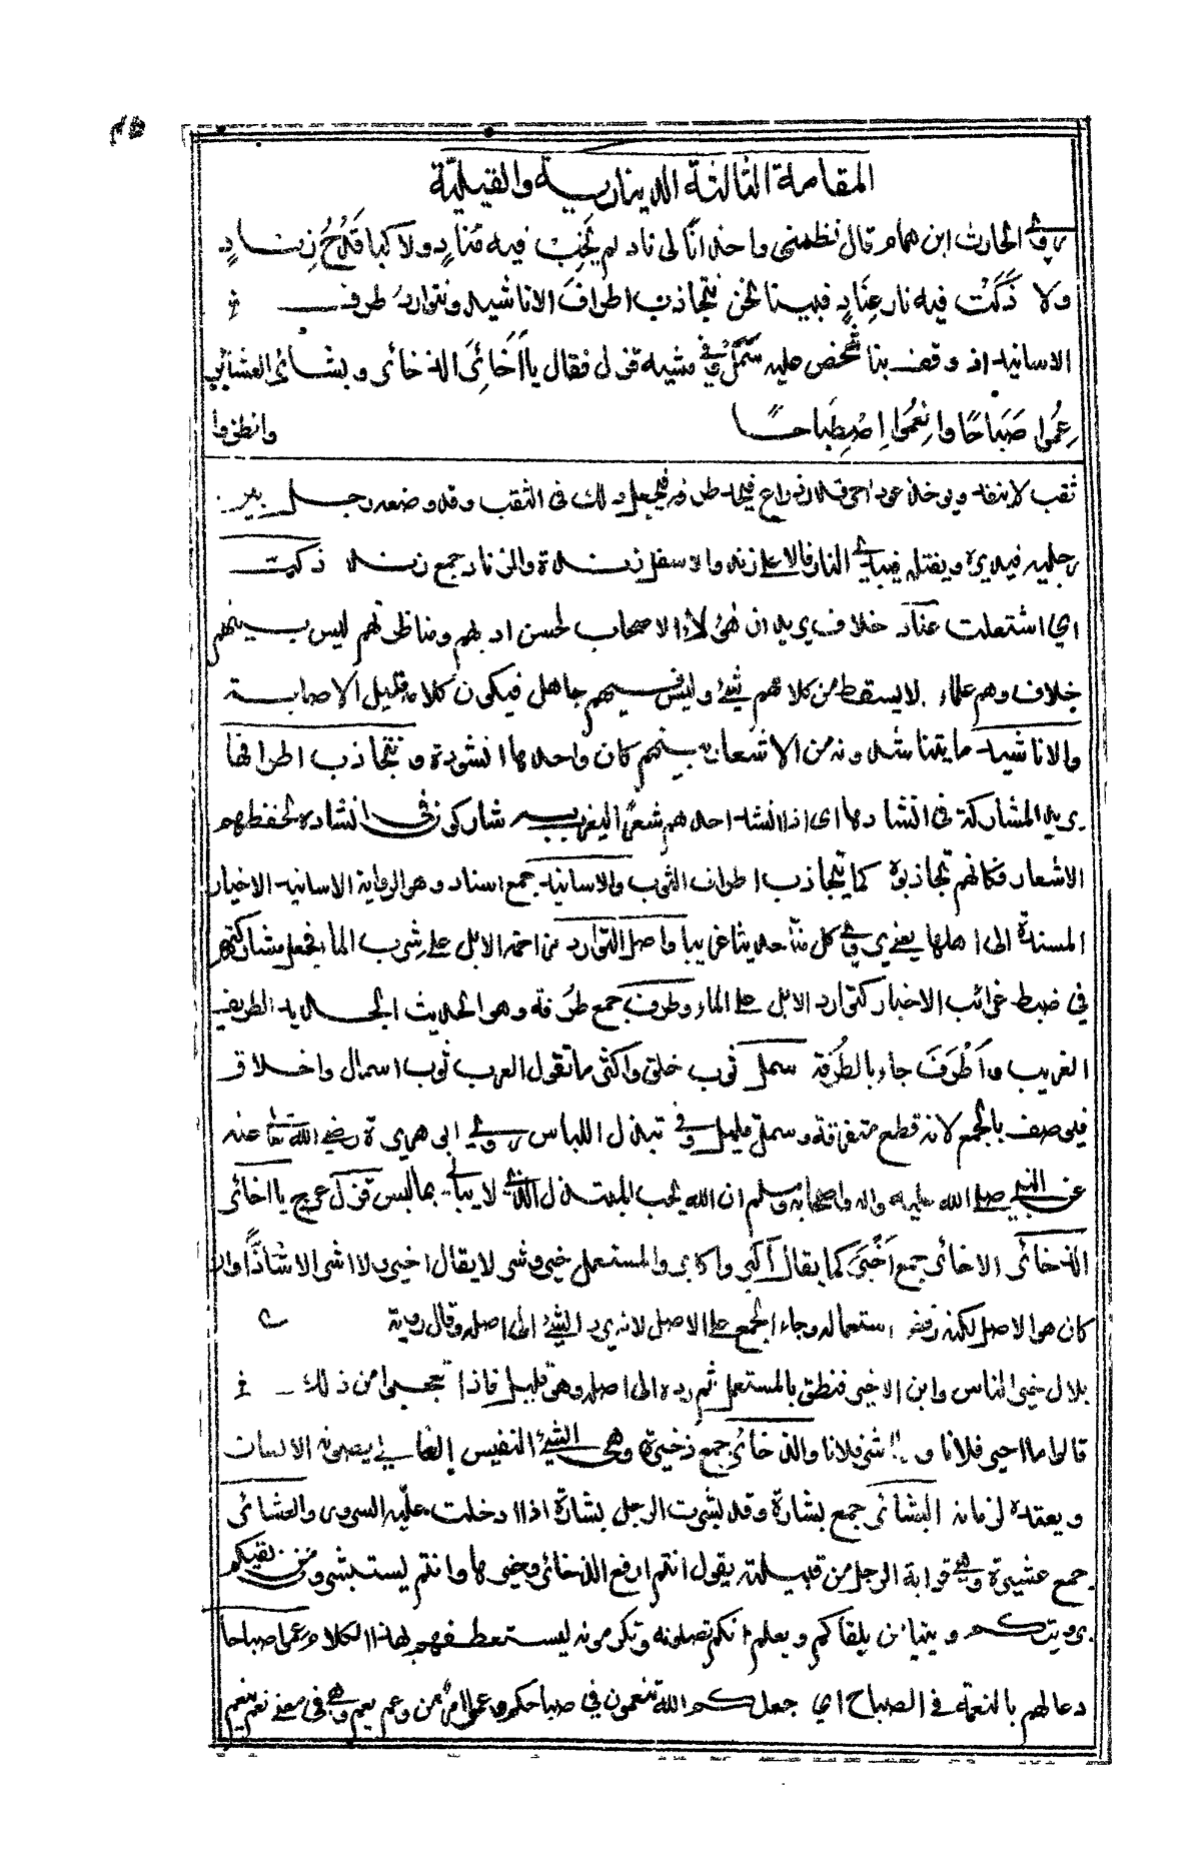 المقامة الثالثة الدينارية والقيلية
روى الحارث ابن همام قال نظمنى واخدانًا لى ناد لم يَخِبْ فيه مُنادٍ ولا كبا قَدْحُ زِنادٍ
ولا ذَكَتْ فيه نار عِنَادٍ فبينا نحن نتجاذب اطراف الاناشيد ونتوارد طرف
الاسانيد اذ وقف بنا شخص عليه سَمَلٌ وفى مشيه قزل فقال يا اَخَائِرَ الذخائر وبشائر العشائر
عِمُوا صَبَاحًا وانْعِمُوا اِصْطِبَاحًا وانظروا
ثقب لا ينفذ ويوخذ عود اخر قدر ذراع فيجعل ذلك فى الثقب وقد وضعه رجل بين
رجليه فيديره ويفتله فيبدى النار فالاعلى زند والاسفل زندة والزناد جمع زند ذكت
اى اشتعلت عناد خلاف يريد ان هؤلاء الاصحاب لحسن ادبهم ومناظرتهم ليس بينهم
خلاف وهم علماء لا يسقط من كلامهم شئ وليس فيهم جاهل فيكون كلامه قليل الاصابة
والاناشيد ما يتناشدونه من الاشعار بينهم كان واحدها انشودة ونتجاذب اطرافها
يريد المشاركة فى انشادها اى اذا انشد احدهم شعرًا لغريب شاركوه فى انشاده لحفظهم
الاشعار فكانهم تجاذبوه كما يتجاذب اطراف الثوب والاسانيد جمع اسناد وهو الرواية الاسانيد الاخبار
المسندة الى اهلها يعنى يروى كل منا حديثا غريبا واصل التوارد من اختر الابل على شرب الماء فجعل مشاركتهم
فى ضبط غرائب الاخبار كتوارد الابل على الماء وطرف جمع طُرفة وهو الحديث الجديد الطريف
الغريب واَطْرَفَ جاء بالطُرْفة سمل ثوب خلق واكثر ما تقول العرب ثوب اسمال واخلاق
فيوصف بالجمع لانه قطع متفرقة وسملة قليل وفى تبذل اللباس روى ابى هريرة رضى الله تعا عنه
عن النبى صلى الله عليه واله واصحابه وسلم ان الله يحب المبتذل الذى لا يبالى بما لبس قزل عرج يا اخائر
الذخائر الاخائر جمع اَخْيَرَ كما يقال اكبر واكابر والمستعمل خير وشر لا يقال اخير ولا اشر الا شاذًّا وان
كان هو الاصل لكنه رفض استعماله وجاء الجمع على الاصل لانه يرد الشئ الى اصله وقال روبة
بلال خير الناس وابن الاخير فنطق بالمستعمل ثم رده الى اصله وهو قليل فاذا تعجبوا من ذلك
قالوا ما اخير فلانا و اشر فلانا والذخائر جمع ذخيرة وهى الشئ النفيس الغالى يصونه الانسان
ويعتده لزمانه البشائر جمع بشارة وقد بشرت الرجل بشارة اذا ادخلت عليه السرور والعشائر
جمع عشيرة وهى قرابة الرجل من قبيلته يقول انتم ارفع الذخائر وخيرها وانتم يستبشر من بقيكم
برويتكم ويتيامن بلقاكم ويعلم انكم تصلونه وتكرمونه ليستعطفهم لهذا الكلام عموا صباحا
دعا لهم بالنعمة فى الصباح اى جعلكم الله تنعمون فى صباحكم وعموا امر من وعم يعم وهى فى معنى نعم ينعم